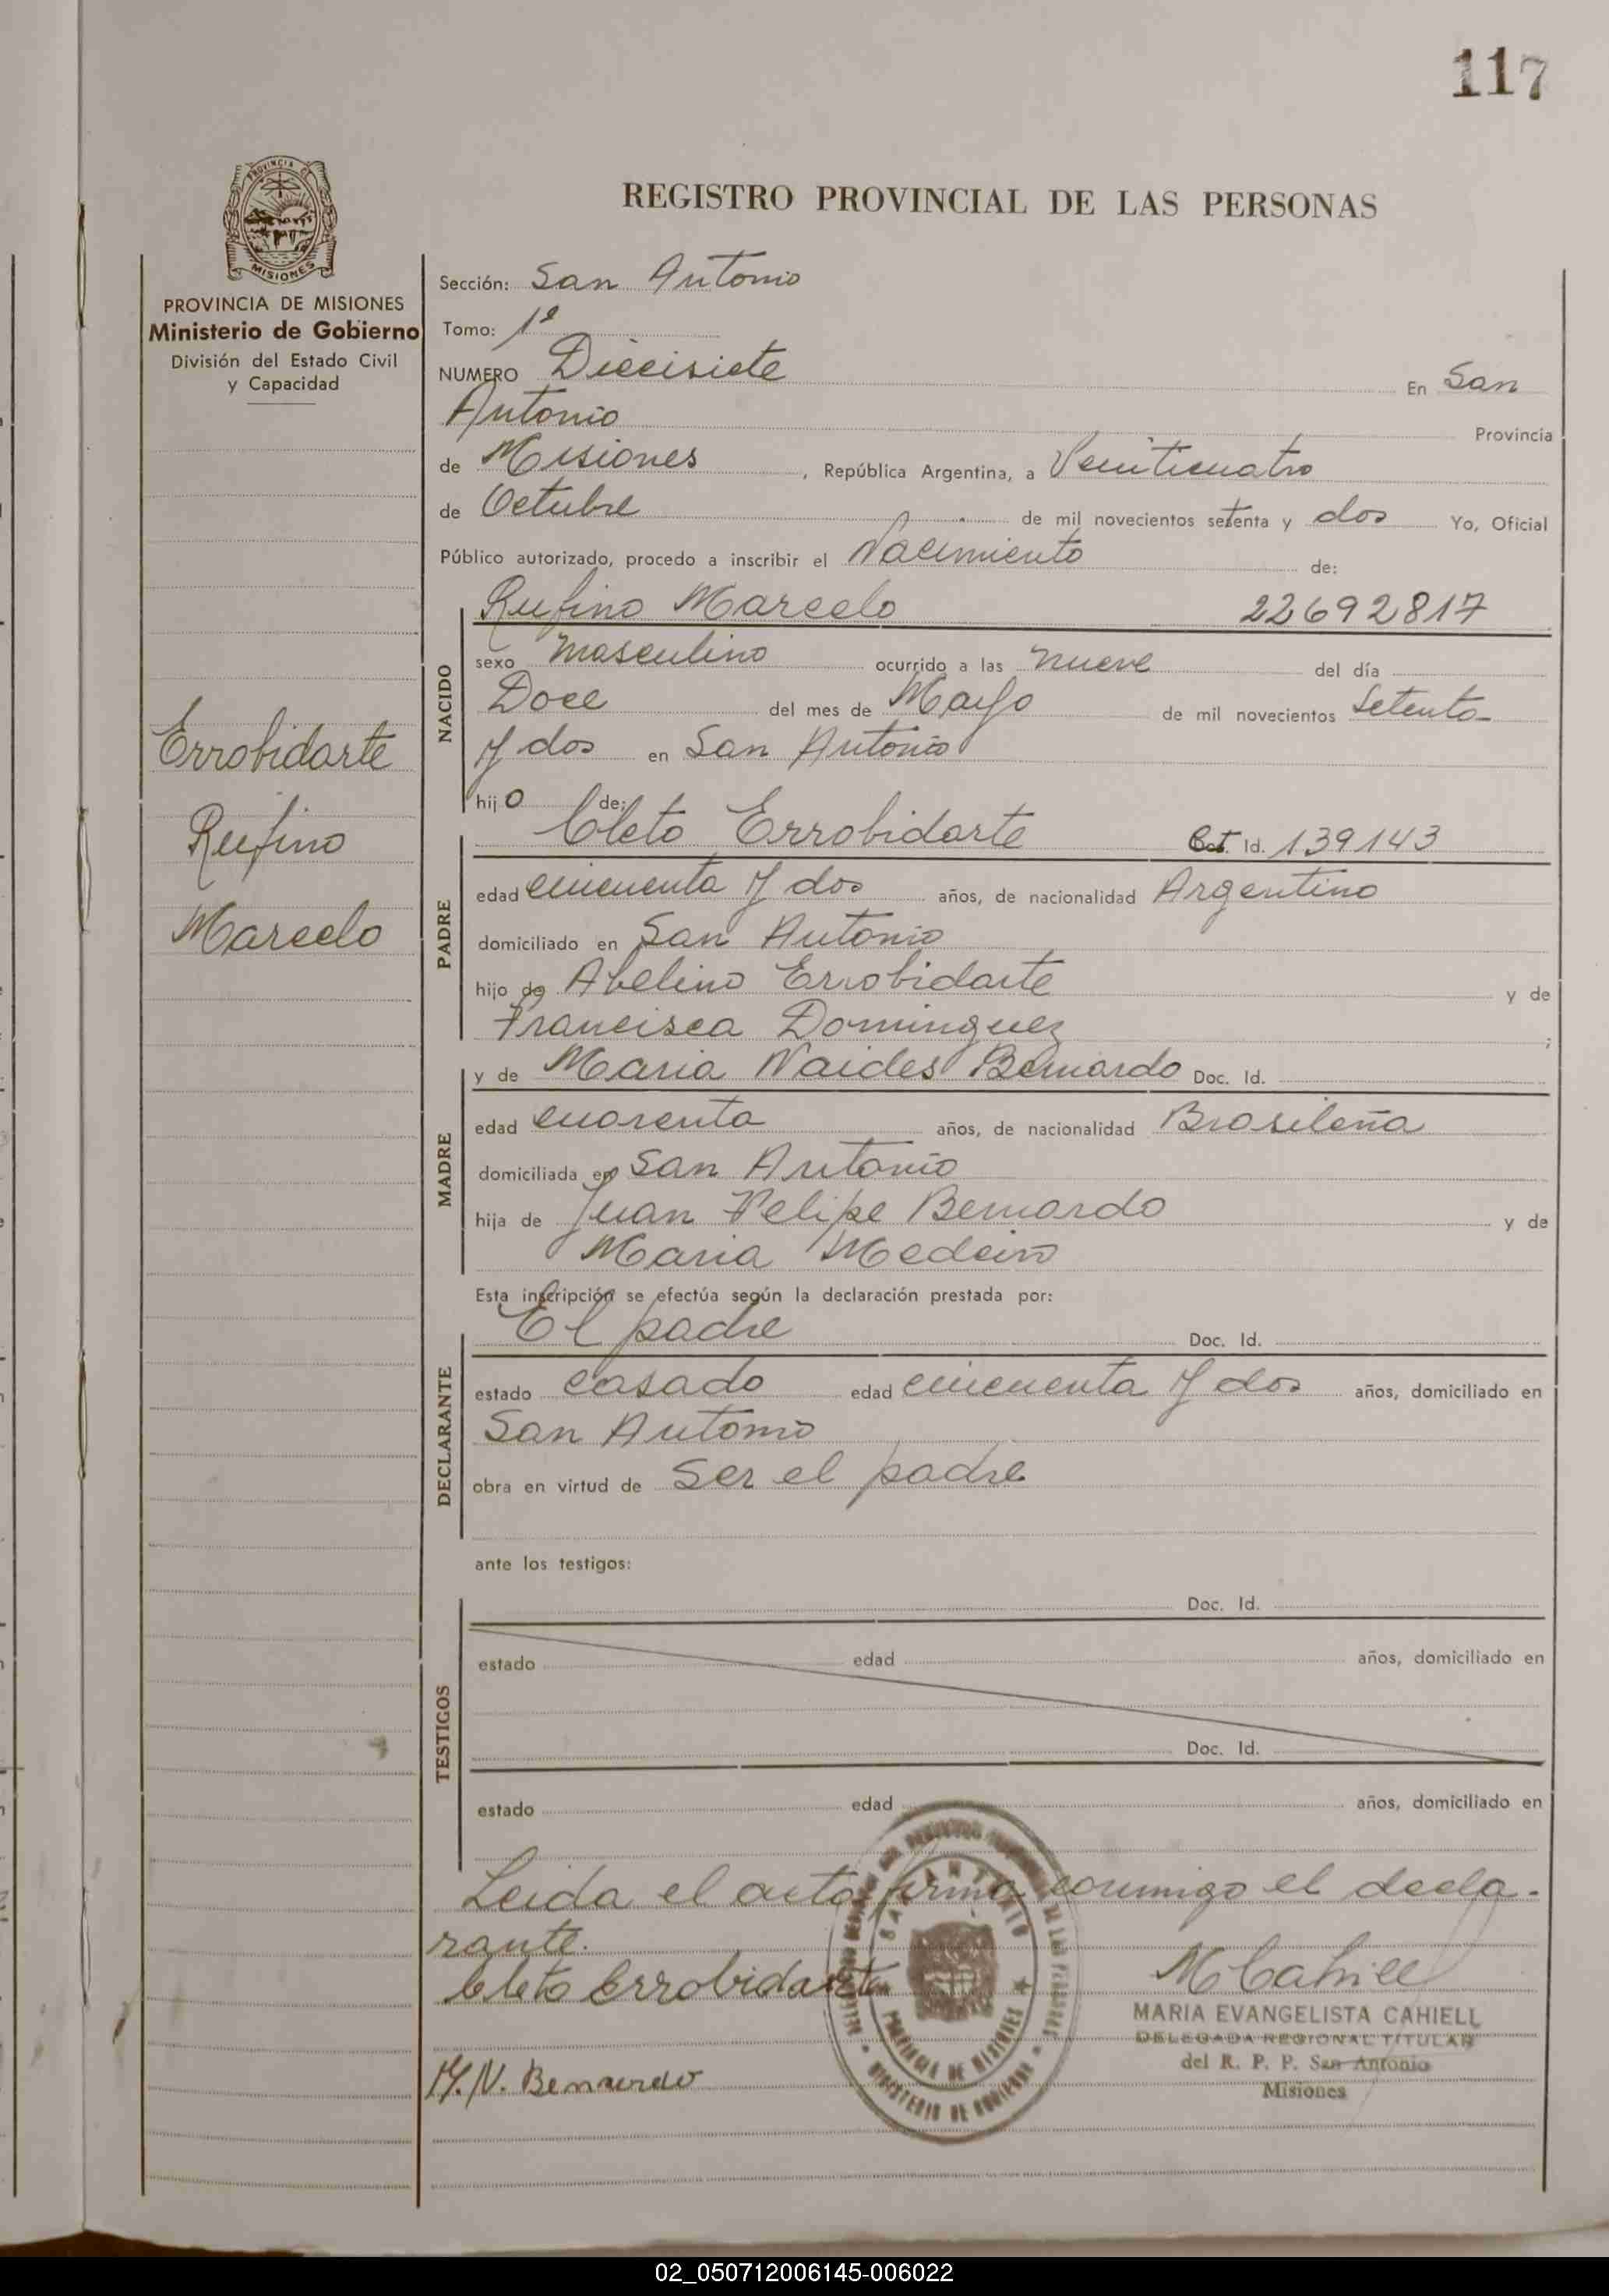 117
PROVINCIA DE
MISIONES
REGISTRO PROVINCIAL DE LAS PERSONAS
PROVINCIA DE MISIONES
Ministerio de Gobierno
División del Estado Civil
y Capacidad
Errobidarte
Rufino
Marcelo
Sección: San Antonio
Tomo: 1º
NUMERO Diecisiete En San
Antonio Provincia
de Misiones, República Argentina, a Veinticuatro
de Octubre de mil novecientos setenta y dos Yo, Oficial
Público autorizado, procedo a inscribir el Nacimiento de:
Rufino Marcelo 22692817
NACIDO
sexo Masculino ocurrido a las nueve del día
Doce del mes de Mayo de mil novecientos Setenta
y dos en San Antonio
hijo de:
Cleto Errobidarte Id. 139143
PADRE
edad cincuenta y dos años, de nacionalidad Argentino
domiciliado en San Antonio
hijo de Abelino Errobidarte y de
Francisca Dominguez ;
y de Maria Naides Bernardo Doc. Id.
MADRE
edad cuarenta años, de nacionalidad Brasileña
domiciliada en San Antonio
hija de Juan Felipe Bernardo y de
Maria Medeiro
Esta inscripción se efectúa según la declaración prestada por:
El padre Doc. Id.
DECLARANTE
estado casado edad cincuenta y dos años, domiciliado en
San Antonio
obra en virtud de Ser el padre
ante los testigos:
Doc. Id.
TESTIGOS
estado edad años, domiciliado en
Doc. Id.
estado edad años, domiciliado en
Leida el acta firma conmigo el decla-
rante.
Cleto Errobidarte
M Cahiell
MARIA EVANGELISTA CAHIELL
DELEGADA REGIONAL TITULAR
del R. P. P. San Antonio
Misiones
M. N. Bernardo
SAN ANTONIO
PROVINCIA DE MISIONES
MINISTERIO DE GOBIERNO
02_050712006145-006022